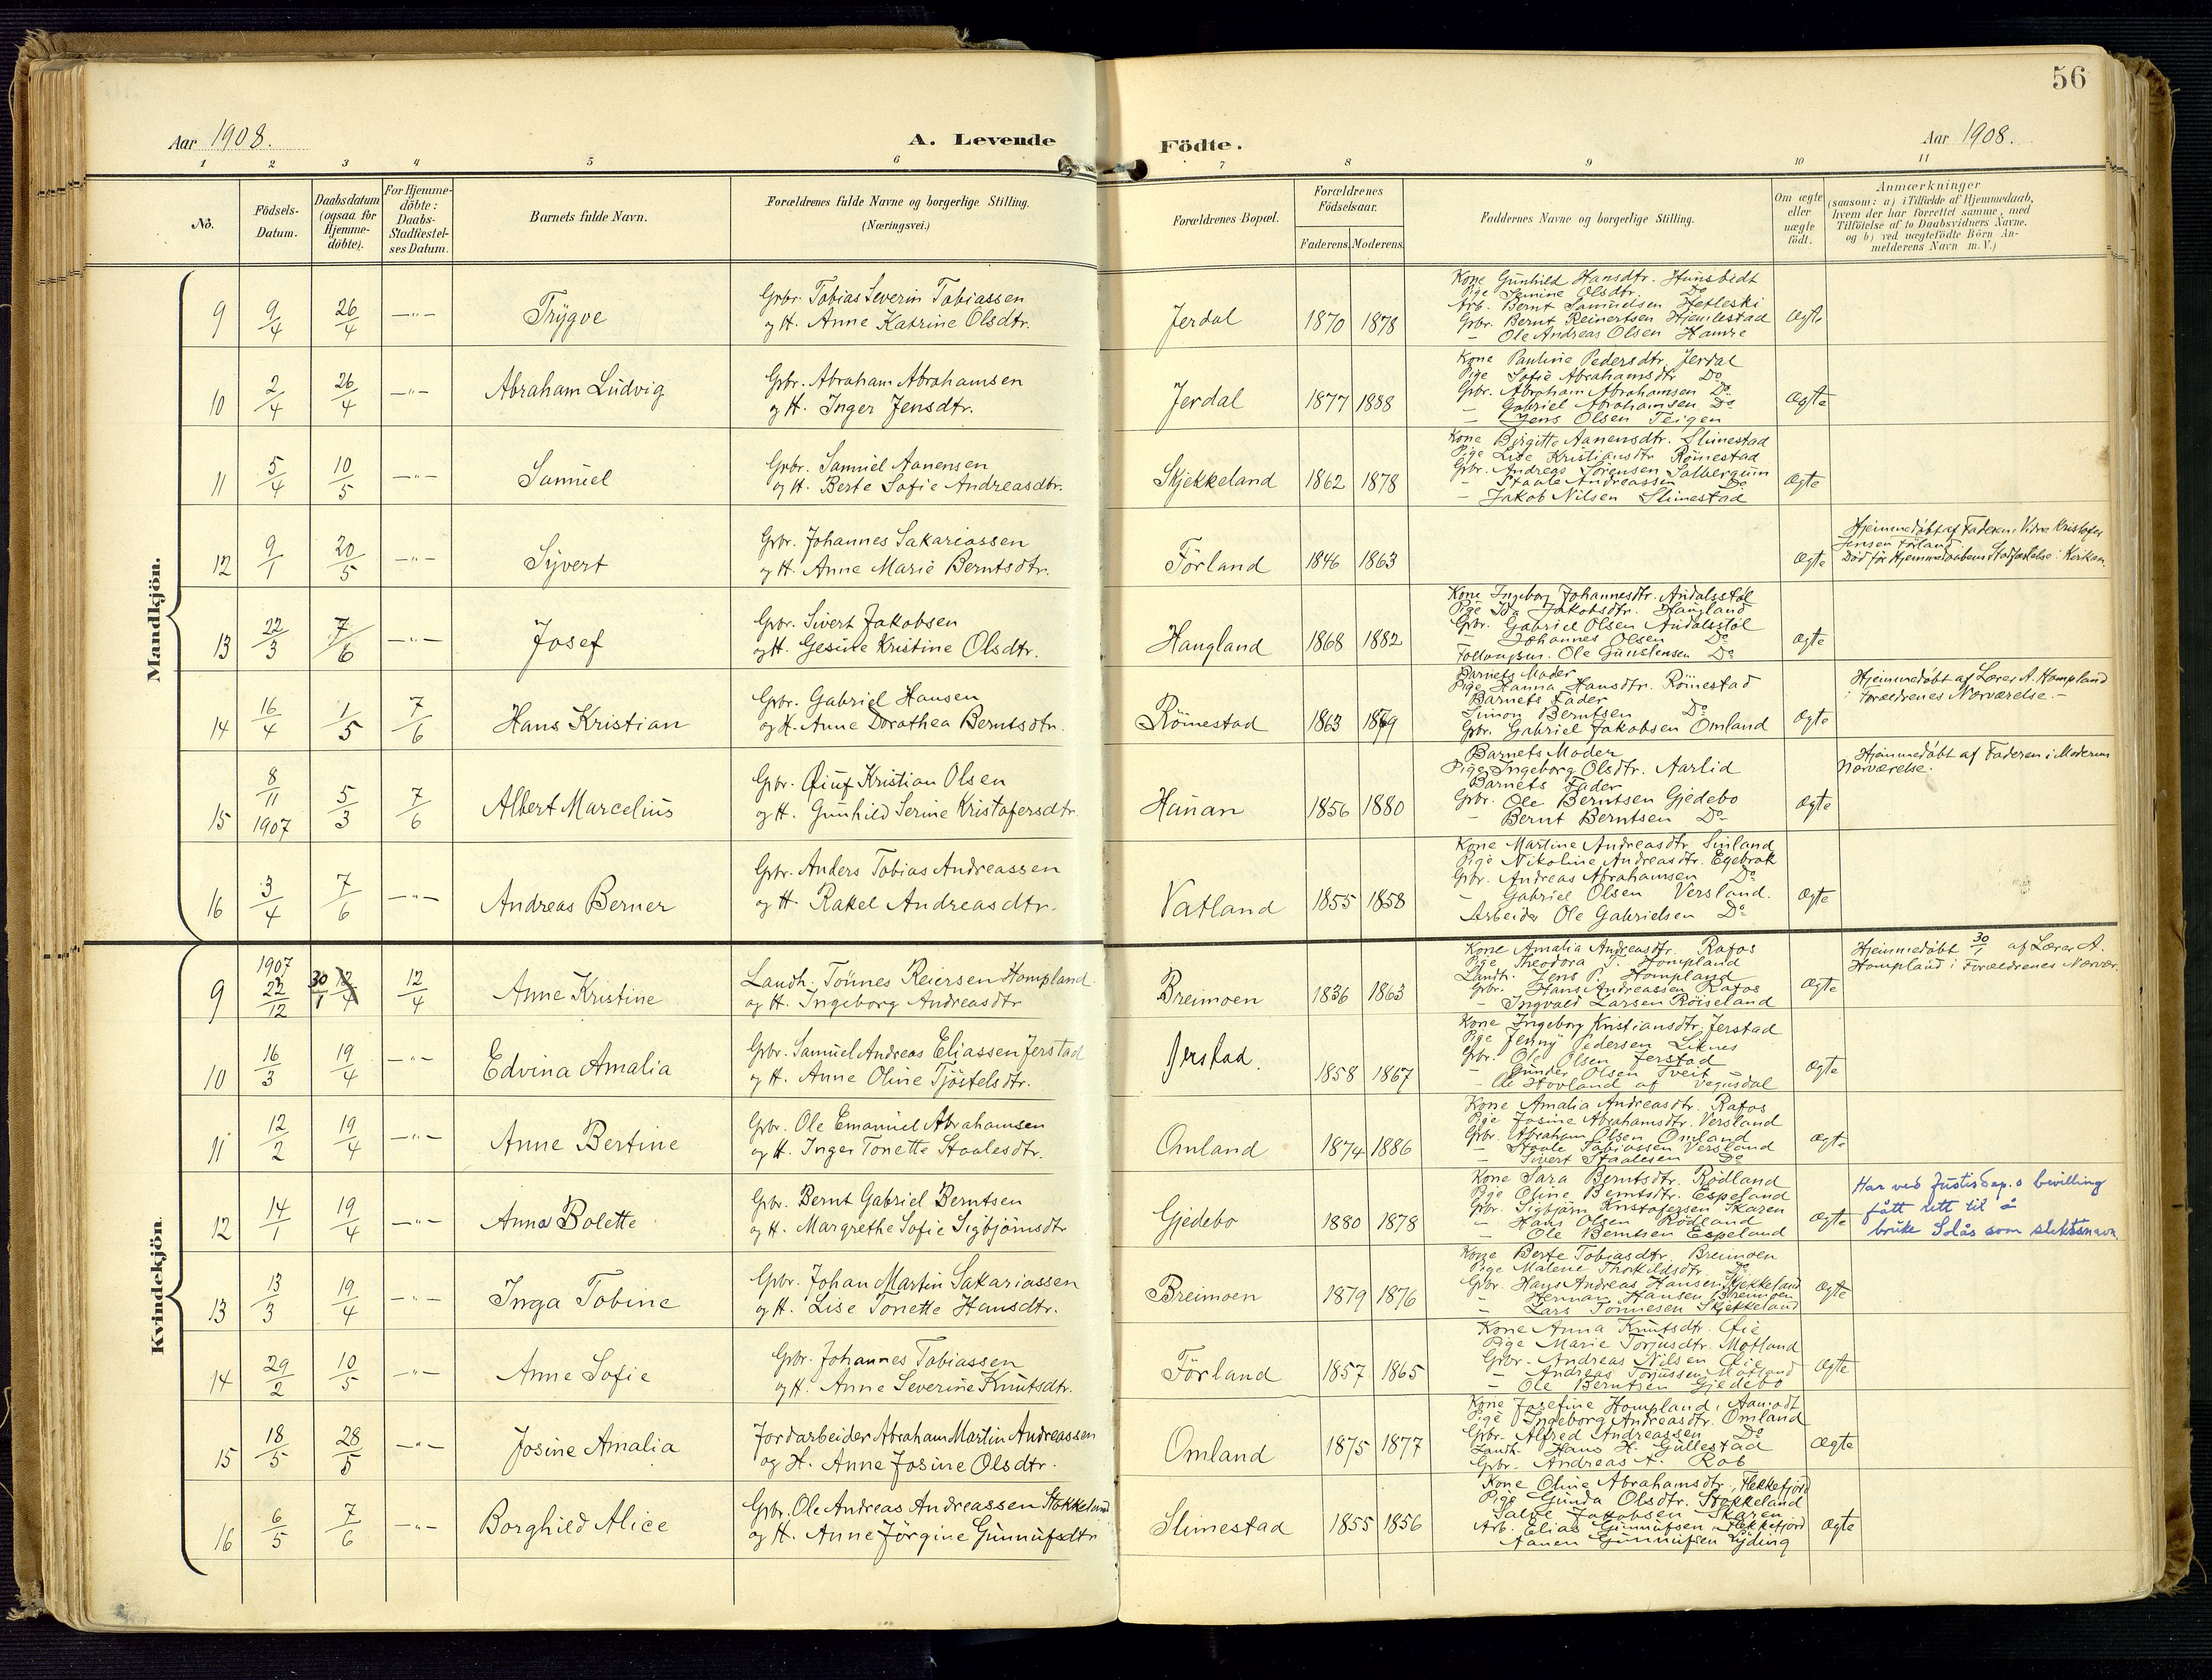 56
Aar 1908.
A. Levende
Födte.
Aar 1908.
1 2 3 4 5 6 7 8 9 10 11
No.
Födsels-Datum.
Daabsdatum (ogsaa for Hjemme-döbte).
For Hjemme-döbte: Daabs-Stadfæstel-ses Datum.
Barnets fulde Navn.
Forældrenes fulde Navne og borgerlige Stilling. (Næringsvei.)
Forældrenes Bopæl.
Forældrenes Födselsaar.
Faderens. Moderens.
Faddernes Navne og borgerlige Stilling.
Om ægte eller uægte födt.
Anmærkninger
(saasom: a) i Tilfælde af Hjemmedaab, hvem der har forrettet samme, med Tilföielse af to Daabsvidners Navne. og b) ved uægtefödte Börn An-melderens Navn m. V.)
Mandkjön.
9 9/4 26/4 —"— Trygve
Grbr. Tobias Severin Tobiassen
og H. Anne Katrine Olsdtr.
Jerdal 1870 1878
Kone Gunhild Hansdtr. Hunsbedt
Pige Semine Olsdtr. Do
Arb. Bernt Samuelsen Hetleski
Grbr. Bernt Reinertsen Hjemlestad
— Ole Andreas Olsen Hamre
Ægte
10 2/4 26/4 —"— Abraham Ludvig
Grbr. Abraham Abrahamsen
og H. Inger Jensdtr.
Jerdal 1877 1888
Kone Pauline Pedersdtr. Jerdal
Pige Sofie Abrahamsdtr Do
Grbr. Abraham Abrahamsen Do
— Gabriel Abrahamsen Do
— Jens Olsen Teigen
Ægte
11 5/4 10/5 —"— Samuel
Grbr. Samuel Aanensen
og H. Berte Sofie Andreasdtr.
Skjekkeland 1862 1878
Kone Birgitte Aanensdtr. Slimestad
Pige Lise Kristiansdtr Römestad
Grbr. Andreas Sörensen Salbergum
— Staale Andreassen Do
— Jakob Nilsen Slimestad
Ægte
12 9/1 20/5 —"— Syvert
Grbr. Johannes Sakariassen
og H. Anne Marie Berntsdtr.
Förland 1846 1863
Ægte
Hjemmedöbt af Faderen. Vidne Kristofer
Jensen Förland
Död för Hjemmedaabens Stadfæstelse i Kirken.
13 22/3 7/6 —"— Josef
Grbr. Sivert Jakobsen
og H. Gesine Kristine Olsdtr.
Haugland 1868 1882
Kone Ingeborg Johannesdtr. Andalsstöl
Pige Ida Jakobsdtr. Haugland
Grbr. Gabriel Olsen Andalsstöl
— Johannes Olsen Do
Ole Gunstensen Do
Ægte
14 16/4 1/5 7/6 Hans Kristian
Grbr. Gabriel Hansen
og H. Anne Dorothea Berntsdtr.
Römestad 1863 1879
Barnets Moder
Pige Hanna Hansdtr. Römestad
Barnets Fader
Simon Berntsen Do
Grbr. Gabriel Jakobsen Omland
Ægte
Hjemmedöbt af Lærer A. Hompland
i Forældrenes Nærværelse.-
15 8/11 1907 5/3 7/6 Albert Marcelius
Grbr. Kristian Olsen
og H. Gunhild Serine Kristofersdtr.
Hanan 1856 1880
Barnets Moder
Pige Ingeborg Olsdtr. Aarlid
Barnets Fader
Grbr. Ole Berntsen Gjedebo
— Bernt Berntsen Do
Ægte
Hjemmedöbt af Faderen i Moderens
Nærværelse.
16 3/4 7/6 —"— Andreas Berner
Grbr. Anders Tobias Andreassen
og H. Rakel Andreasdtr.
Vatland 1855 1858
Kone Martine Andreasdtr. Sinland
Pige Nikoline Andreasdtr. Egebrok
Grbr. Andreas Abrahamsen Do
— Gabriel Olsen Versland.
Arbeider Ole Gabrielsen Do
Ægte
Kvindekjön.
9 1907 22/12 30/1 12/4 12/4 Anne Kristine
Landh. Tönnes Reiersen Hompland
og H. Ingeborg Andreasdtr
Breimoen 1836 1863
Kone Amalia Andreasdtr. Rafos
Pige Theodora T. Hompland
Landh. Jens P. Hompland
Grbr. Hans Andreassen Rafos
— Ingvald Larsen Röiseland
Ægte
Hjemmedöbt 30/1 af Lærer A.
Hompland i Forældrenes Nærvær.
10 16/3 19/4 —"— Edvina Amalia
Grbr. Samuel Andreas Eliassen Jerstad
og H. Anne Oline Tjöstelsdtr.
Jerstad. 1858 1867
Kone Ingeborg Kristiansdtr. Jerstad
Pige Jenny Pedersen Liknes
Grbr. Ole Olsen Jerstad
— Gunder Olsen Tveit
— Ole Hovland af Vegusdal
Ægte
11 12/2 19/4 —"— Anne Bertine
Grbr. Ole Emanuel Abrahamsen
og H. Inger Tonette Staalesdtr.
Omland 1874 1886
Kone Amalia Andreasdtr. Rafos
Pige Josine Abrahamsdtr. Versland
Grbr. Abraham Olsen Omland
— Staale Tobiassen Versland
— Sivert Staalesen Do
Ægte
12 14/1 19/4 —"— Anna Bolette
Grbr. Bernt Gabriel Berntsen
og H. Margrethe Sofie Sigbjörnsdtr
Gjedebo 1880 1878
Kone Sara Berntsdtr. Rödland
Pige Oline Berntsdtr. Espeland
Grbr. Sigbjörn Kristofersen Skaren
— Hans Olsen Rödland
— Ole Berntsen Espeland
Ægte
Har ved Justisdep.s bevilling
fått rett til å
bruke Solås som slektsnavn.
13 13/3 19/4 —"— Inga Tobine
Grbr. Johan Martin Sakariassen
og H. Lise Tonette Hansdtr.
Breimoen 1879 1876
Kone Berte Tobiasdtr. Breimoen
Pige Malene Thorkildsdtr. Do
Grbr. Hans Andreas Hansen Skjekkeland
— Herman Hansen Breimoen
— Lars Tönnesen Skjekkeland
Ægte
14 29/2 10/5 —"— Anne Sofie
Grbr. Johannes Tobiassen
og H. Anne Severine Knutsdtr.
Förland 1857 1865
Kone Anna Knutsdtr. Öie
Pige Marie Torjusdtr. Motland
Grbr. Andreas Nilsen Öie
— Andreas Torjussen Motland
— Ole Berntsen Gjedebo
Ægte
15 18/5 28/5 —"— Josine Amalia
Jordarbeider Abraham Martin Andreassen
og H. Anne Josine Olsdtr.
Omland 1875 1877
Kone Josefine Hompland, Aamodt
Pige Ingeborg Andreasdtr. Omland
Grbr. Alfred Andreassen Do
Landh. Hans H. Gullestad
Grbr. Andreas A. Rob
Ægte
16 6/5 7/6 —"— Borghild Alice
Grbr. Ole Andreas Andreassen Stokkeland
og H. Anne Jörgine Gunnufsdtr
Slimestad 1855 1856
Kone Oline Abrahamsdtr. Flekkefjord
Pige Gunda Olsdtr. Stokkeland
Salve Jakobsen Skaren
Arb. Elias Gunnufsen Flekkefjord
Aanen Gunnufsen
Ægte